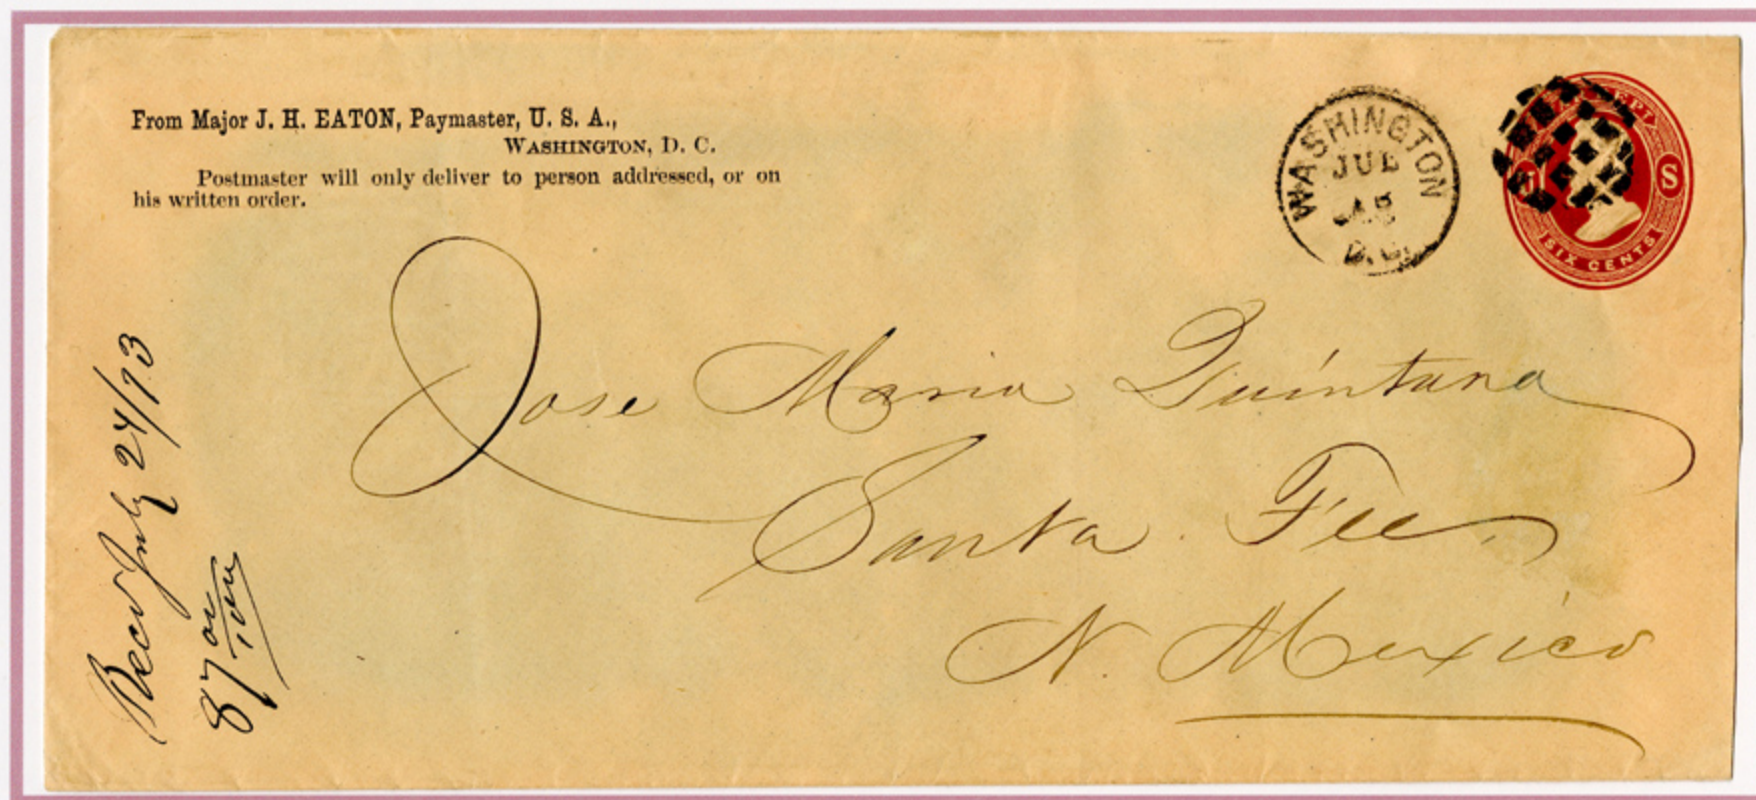 From Major J. H. EATON, Paymaster, U. S. A.,
WASHINGTON, D. C.
Postmaster will only deliver to person addressed, or on
his written order.
WASHINGTON
JUL
D.C.
S
SIX CENTS
Jose Maria Quintana
Santa Fee.
N. Mexico
Recd July 24/73
87